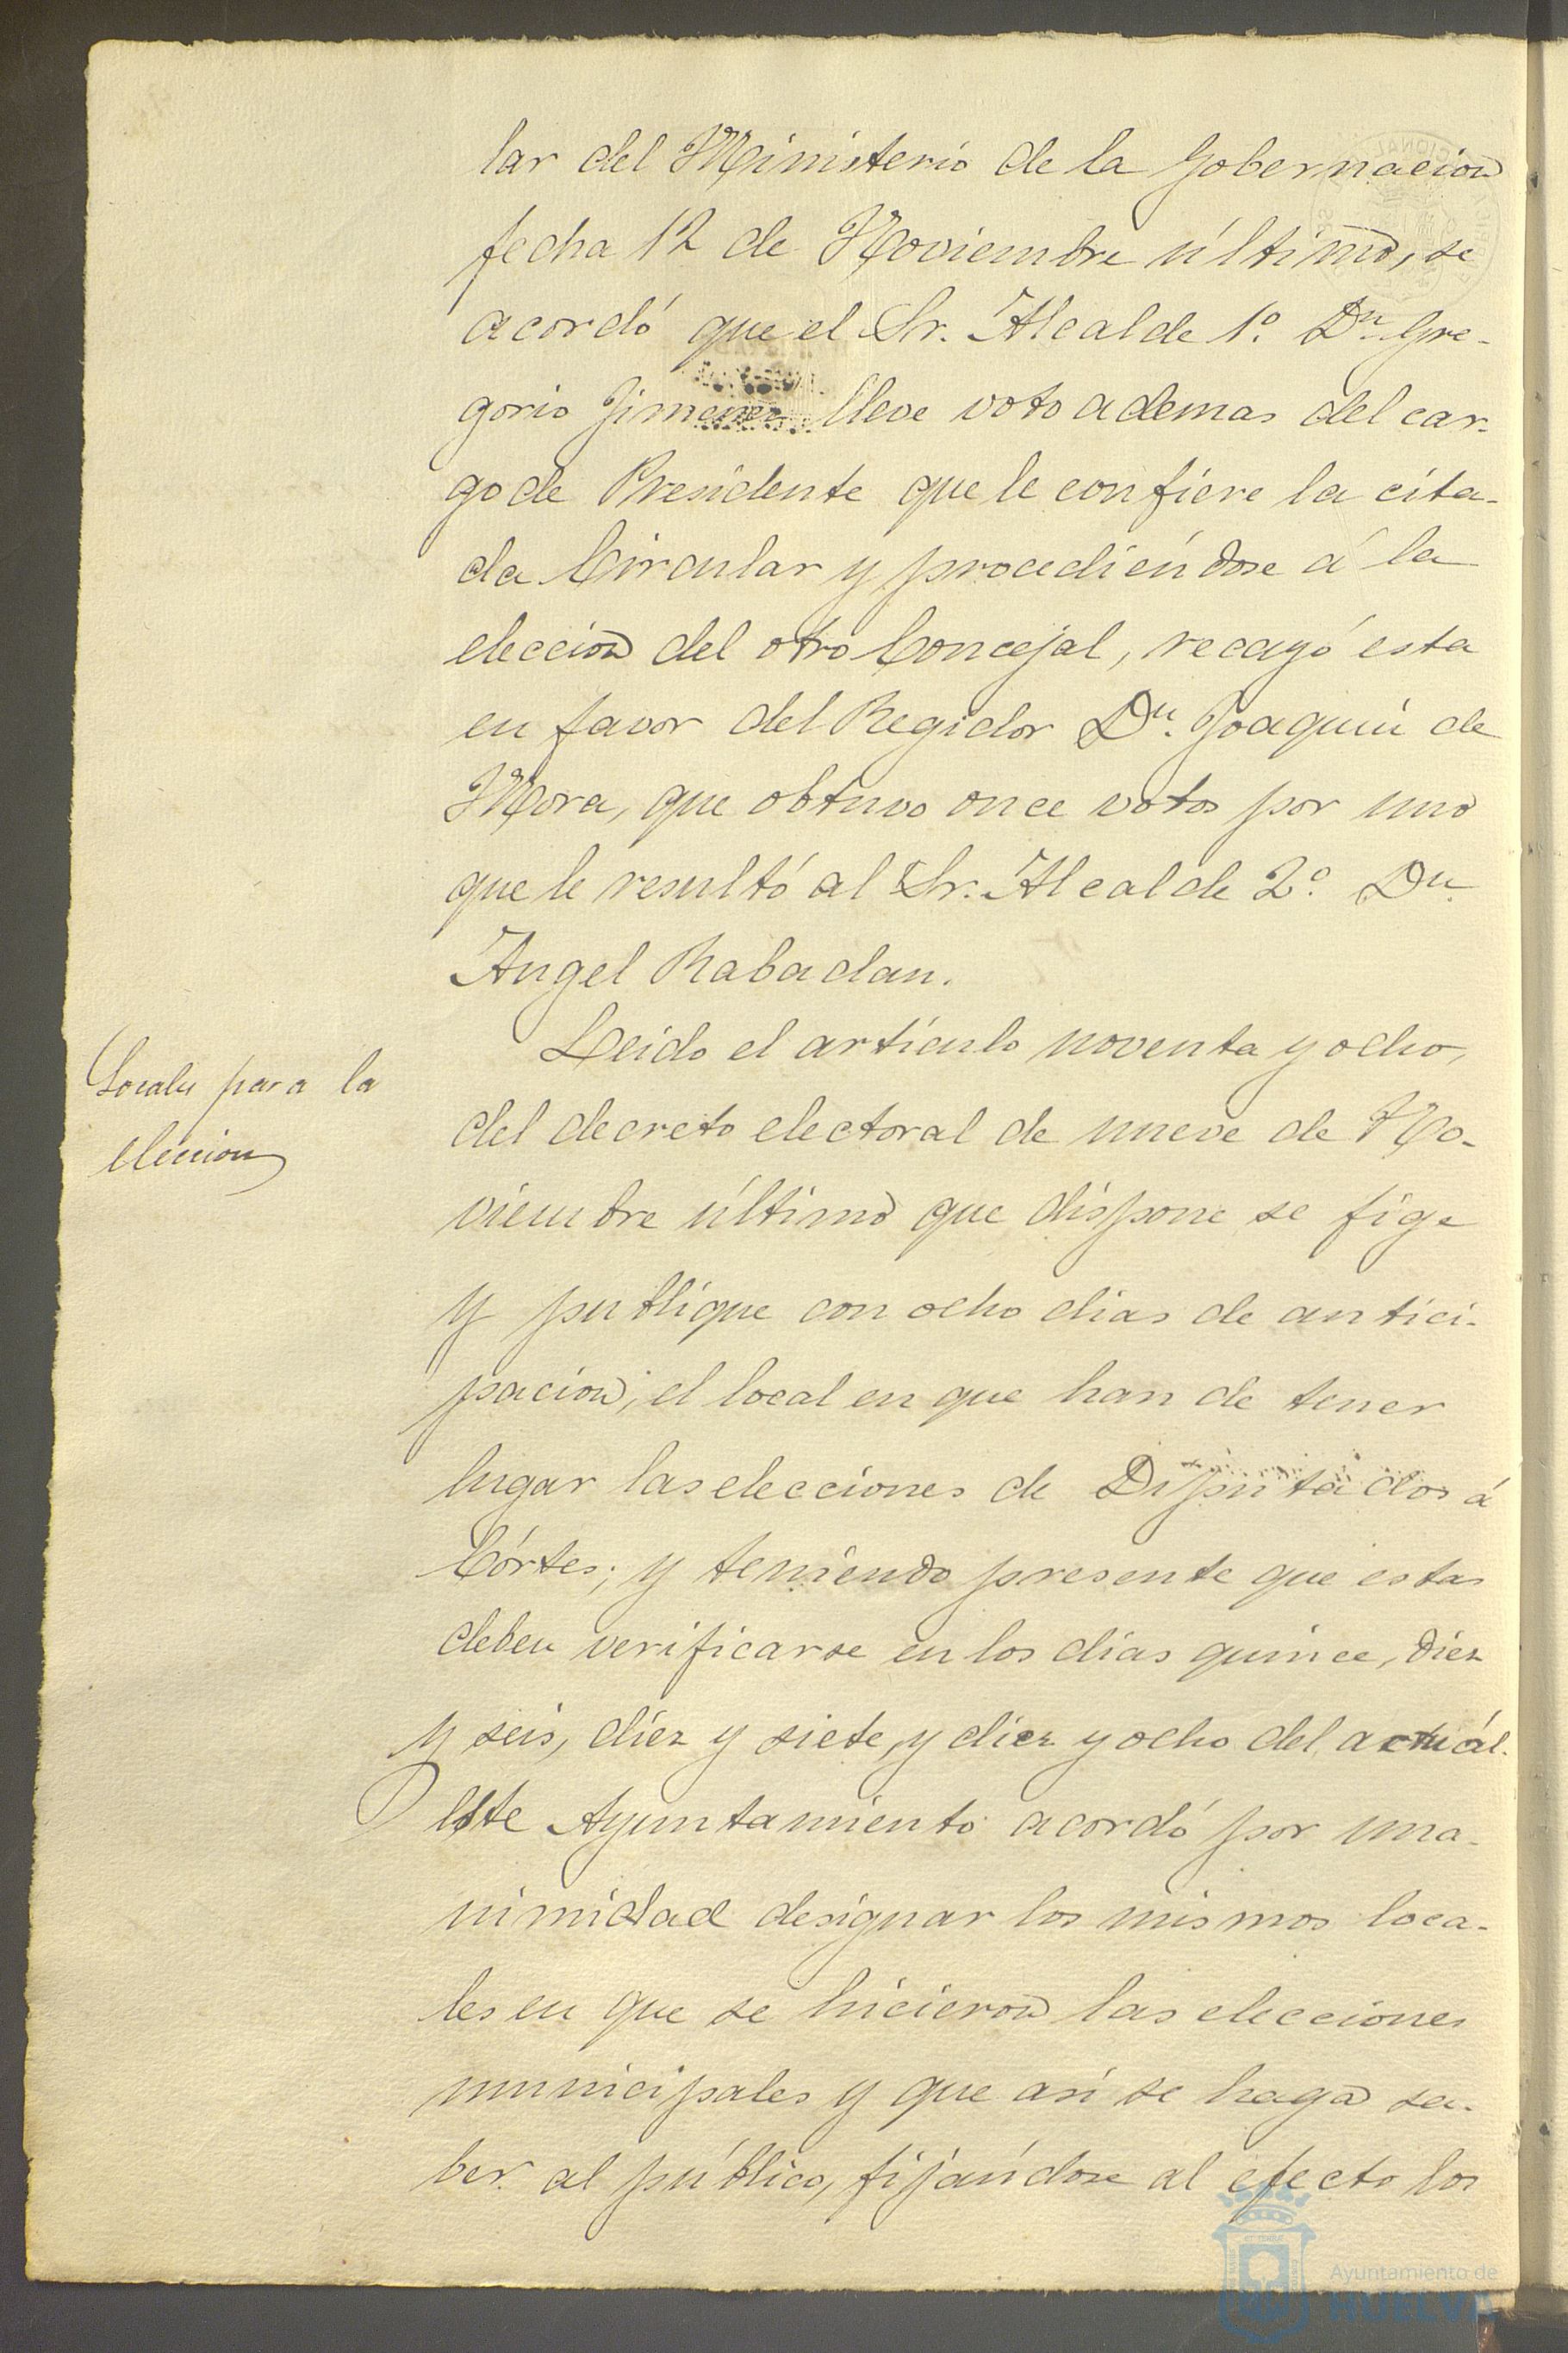 lar del Ministerio de la Gobernacion
fecha 12 de Noviembre último, se
acordó que el Sr. Alcalde 1º. Dn. Gre-
gorio Jimenez lleve voto ademas del car-
go de Presidente que le confiere la cita-
da Circular y procediéndose á la
eleccion del otro Concejal, recayó esta
en favor del Regidor Dn. Joaquin de
Mora, que obtuvo once votos por uno
que le resultó al Sr. Alcalde 2º. Dn.
Angel Rabadan.
Locales para la
eleccion
Leido el artículo noventa y ocho,
del decreto electoral de nueve de No-
viembre último que dispone se fige
y publique con ocho dias de antici-
pacion, el local en que han de tener
lugar las elecciones de Diputados á
Córtes; y teniendo presente que estas
deben verificarse en los dias quince, diez
y seis, diez y siete, y diez y ocho del actuál.
Este Ayuntamiento acordó por una-
nimidad designar los mismos loca-
les en que se hicieron las elecciones
municipales y que asi se haga sa-
ber al público, fijándose al efecto los
Ayuntamiento de
HUELVA